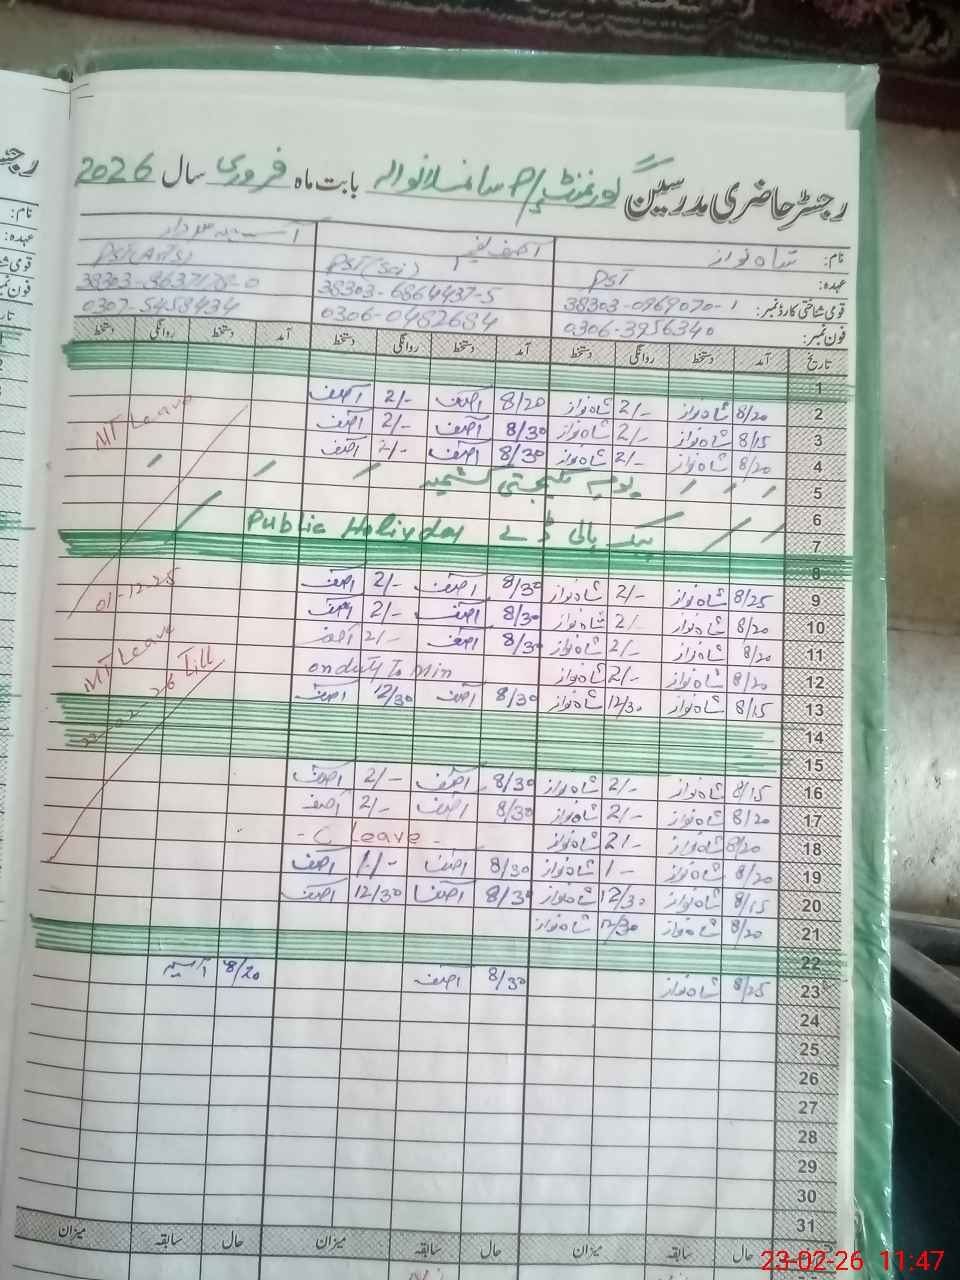 رجسٹر حاضری مدرسین گورنمنٹ P/S بابت ماہ فروری سال 2026
نام: شاہ نواز آصف آسیہ سردار
عہدہ: PST PST(Sci) PST(Arts)
قومی شناختی کارڈ نمبر: 38303-0969070-1 38303-6864437-5
فون نمبر: 0306-3956340 0306-0482684 0307-5458434
تاریخ آمد دستخط روانگی دستخط آمد دستخط روانگی دستخط آمد دستخط روانگی دستخط
1
2 8/20 شاہ نواز 2/- شاہ نواز 8/20 آصف 2/- آصف
3 8/15 شاہ نواز 2/- شاہ نواز 8/30 آصف 2/- آصف
4 8/20 شاہ نواز 2/- شاہ نواز 8/30 آصف 2/- آصف
MT Leave
5 یوم یکجہتی کشمیر
6
7 Public Holiyday
8
9 8/25 شاہ نواز 2/- شاہ نواز 8/30 آصف 2/- آصف
01-12-25
10 8/20 شاہ نواز 2/- شاہ نواز 8/30 آصف 2/- آصف
11 8/20 شاہ نواز 2/- شاہ نواز 8/30 آصف 2/- آصف
MT Leave
12 8/20 شاہ نواز 2/- شاہ نواز on duty To Min
Till
13 8/15 شاہ نواز 12/30 شاہ نواز 8/30 آصف 12/30 آصف
14
15
16 8/15 شاہ نواز 2/- شاہ نواز 8/30 آصف 2/- آصف
17 8/20 شاہ نواز 2/- شاہ نواز 8/30 آصف 2/- آصف
18 8/20 شاہ نواز 2/- شاہ نواز - C Leave -
19 8/20 شاہ نواز 1/- شاہ نواز 8/30 آصف 1/- آصف
20 8/15 شاہ نواز 12/30 شاہ نواز 8/30 آصف 12/30 آصف
21 8/20 شاہ نواز 12/30 شاہ نواز
22
23 8/25 شاہ نواز 8/30 آصف 8/20 آسیہ
24
25
26
27
28
29
30
31
حال سابقہ میزان حال سابقہ میزان حال سابقہ میزان
23-02-26 11:47